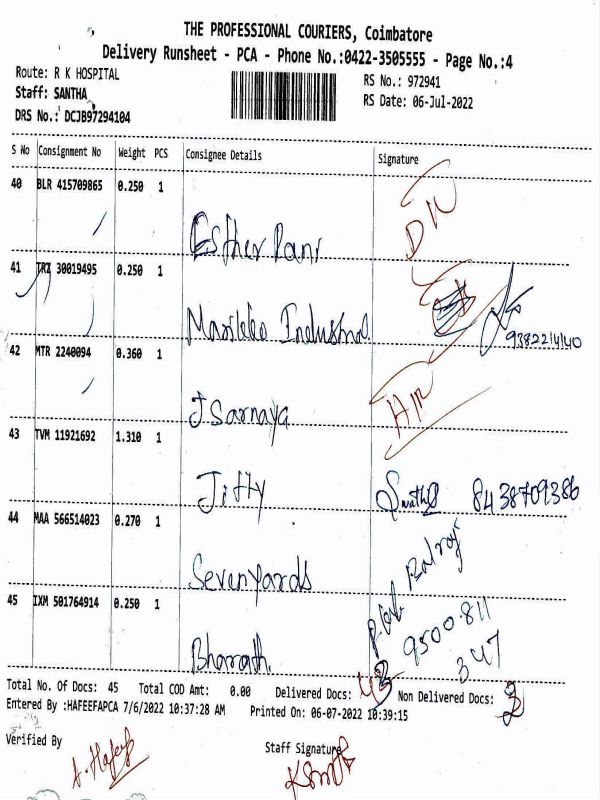 THE PROFESSIONAL COURIERS, Coimbatore
Delivery Runsheet - PCA - Phone No.:0422-3505555 - Page No.:4
Route: R K HOSPITAL
RS No.: 972941
Staff: SANTHA
RS Date: 06-Jul-2022
DRS No.: DCJB97294104
S No Consignment No Weight PCS Consignee Details Signature
40 BLR 415709865 0.250 1
Esther Rani
41 TRZ 30019495 0.250 1
Industrial
9382214140
42 MTR 2240094 0.360 1
J Sarnaya
43 TVM 11921692 1.310 1
Jiffy 8438709386
44 MAA 566514023 0.270 1
Sevenyards
45 IXM 501764914 0.250 1
9500811
347
Bharath.
Total No. Of Docs: 45 Total COD Amt: 0.00 Delivered Docs: 43 Non Delivered Docs: 2
Entered By :HAFEEFAPCA 7/6/2022 10:37:28 AM Printed On: 06-07-2022 10:39:15
Verified By Staff Signature